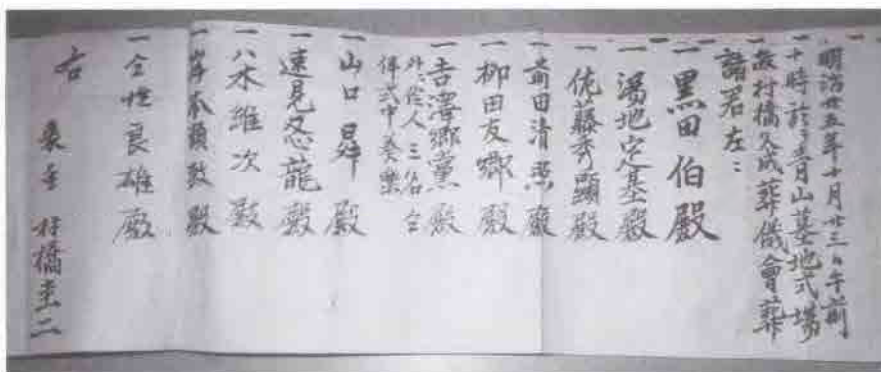 明治廿五年十月廿三日午前
十時於青山墓地式場
故村橋久成葬儀會葬
諸君左ニ
一黒田伯殿
一湯地定基殿
一佐藤秀顕殿
一前田清照殿
一柳田友郷殿
一吉澤郷黨殿
外ニ伶人三名仝
葬式中奏樂
一山口昇殿
一速見忍龍殿
一八木維次殿
一岸本頼敦殿
一仝世良雄殿
右
喪主 村橋圭二